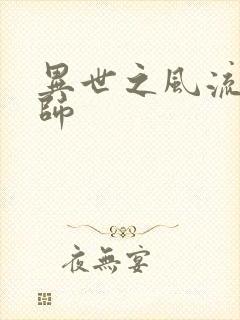 異世之風流
師
夜無宴